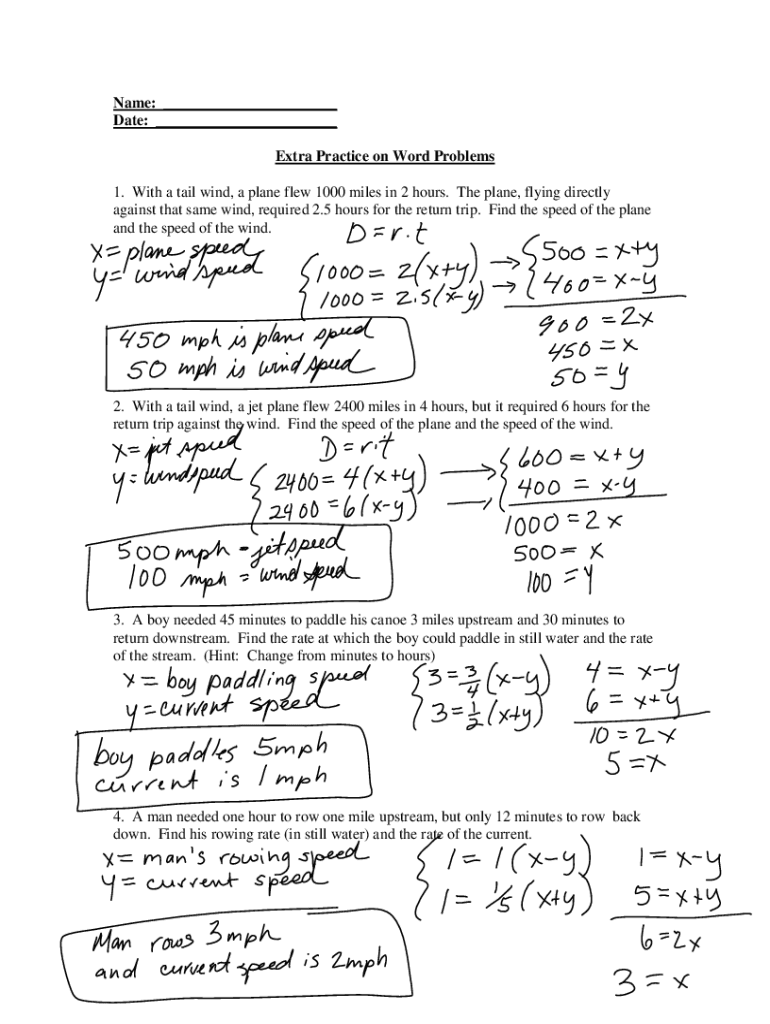 Name: ______________________
Date: ______________________
Extra Practice on Word Problems
1. With a tail wind, a plane flew 1000 miles in 2 hours. The plane, flying directly
against that same wind, required 2.5 hours for the return trip. Find the speed of the plane
and the speed of the wind.
D = r.t
x = plane speed
y = wind speed
1000 = 2(x+y) → 500 = x+y
1000 = 2.5(x-y) → 400 = x-y
900 = 2x
450 = x
50 = y
450 mph is plane speed
50 mph is wind speed
2. With a tail wind, a jet plane flew 2400 miles in 4 hours, but it required 6 hours for the
return trip against the wind. Find the speed of the plane and the speed of the wind.
x = jet speed
D = r.t
y = windspeed
2400 = 4(x+y) → 600 = x+y
2400 = 6(x-y) → 400 = x-y
1000 = 2x
500 = x
100 = y
500 mph - jet speed
100 mph = wind speed
3. A boy needed 45 minutes to paddle his canoe 3 miles upstream and 30 minutes to
return downstream. Find the rate at which the boy could paddle in still water and the rate
of the stream. (Hint: Change from minutes to hours)
x = boy paddling speed
y = current speed
3 = 3/4 (x-y) 4 = x-y
3 = 1/2 (x+y) 6 = x+y
10 = 2x
5 = x
boy paddles 5mph
current is 1 mph
4. A man needed one hour to row one mile upstream, but only 12 minutes to row back
down. Find his rowing rate (in still water) and the rate of the current.
x = man's rowing speed
y = current speed
1 = 1(x-y) 1 = x-y
1 = 1/5 (x+y) 5 = x+y
6 = 2x
3 = x
Man rows 3mph
and current speed is 2mph